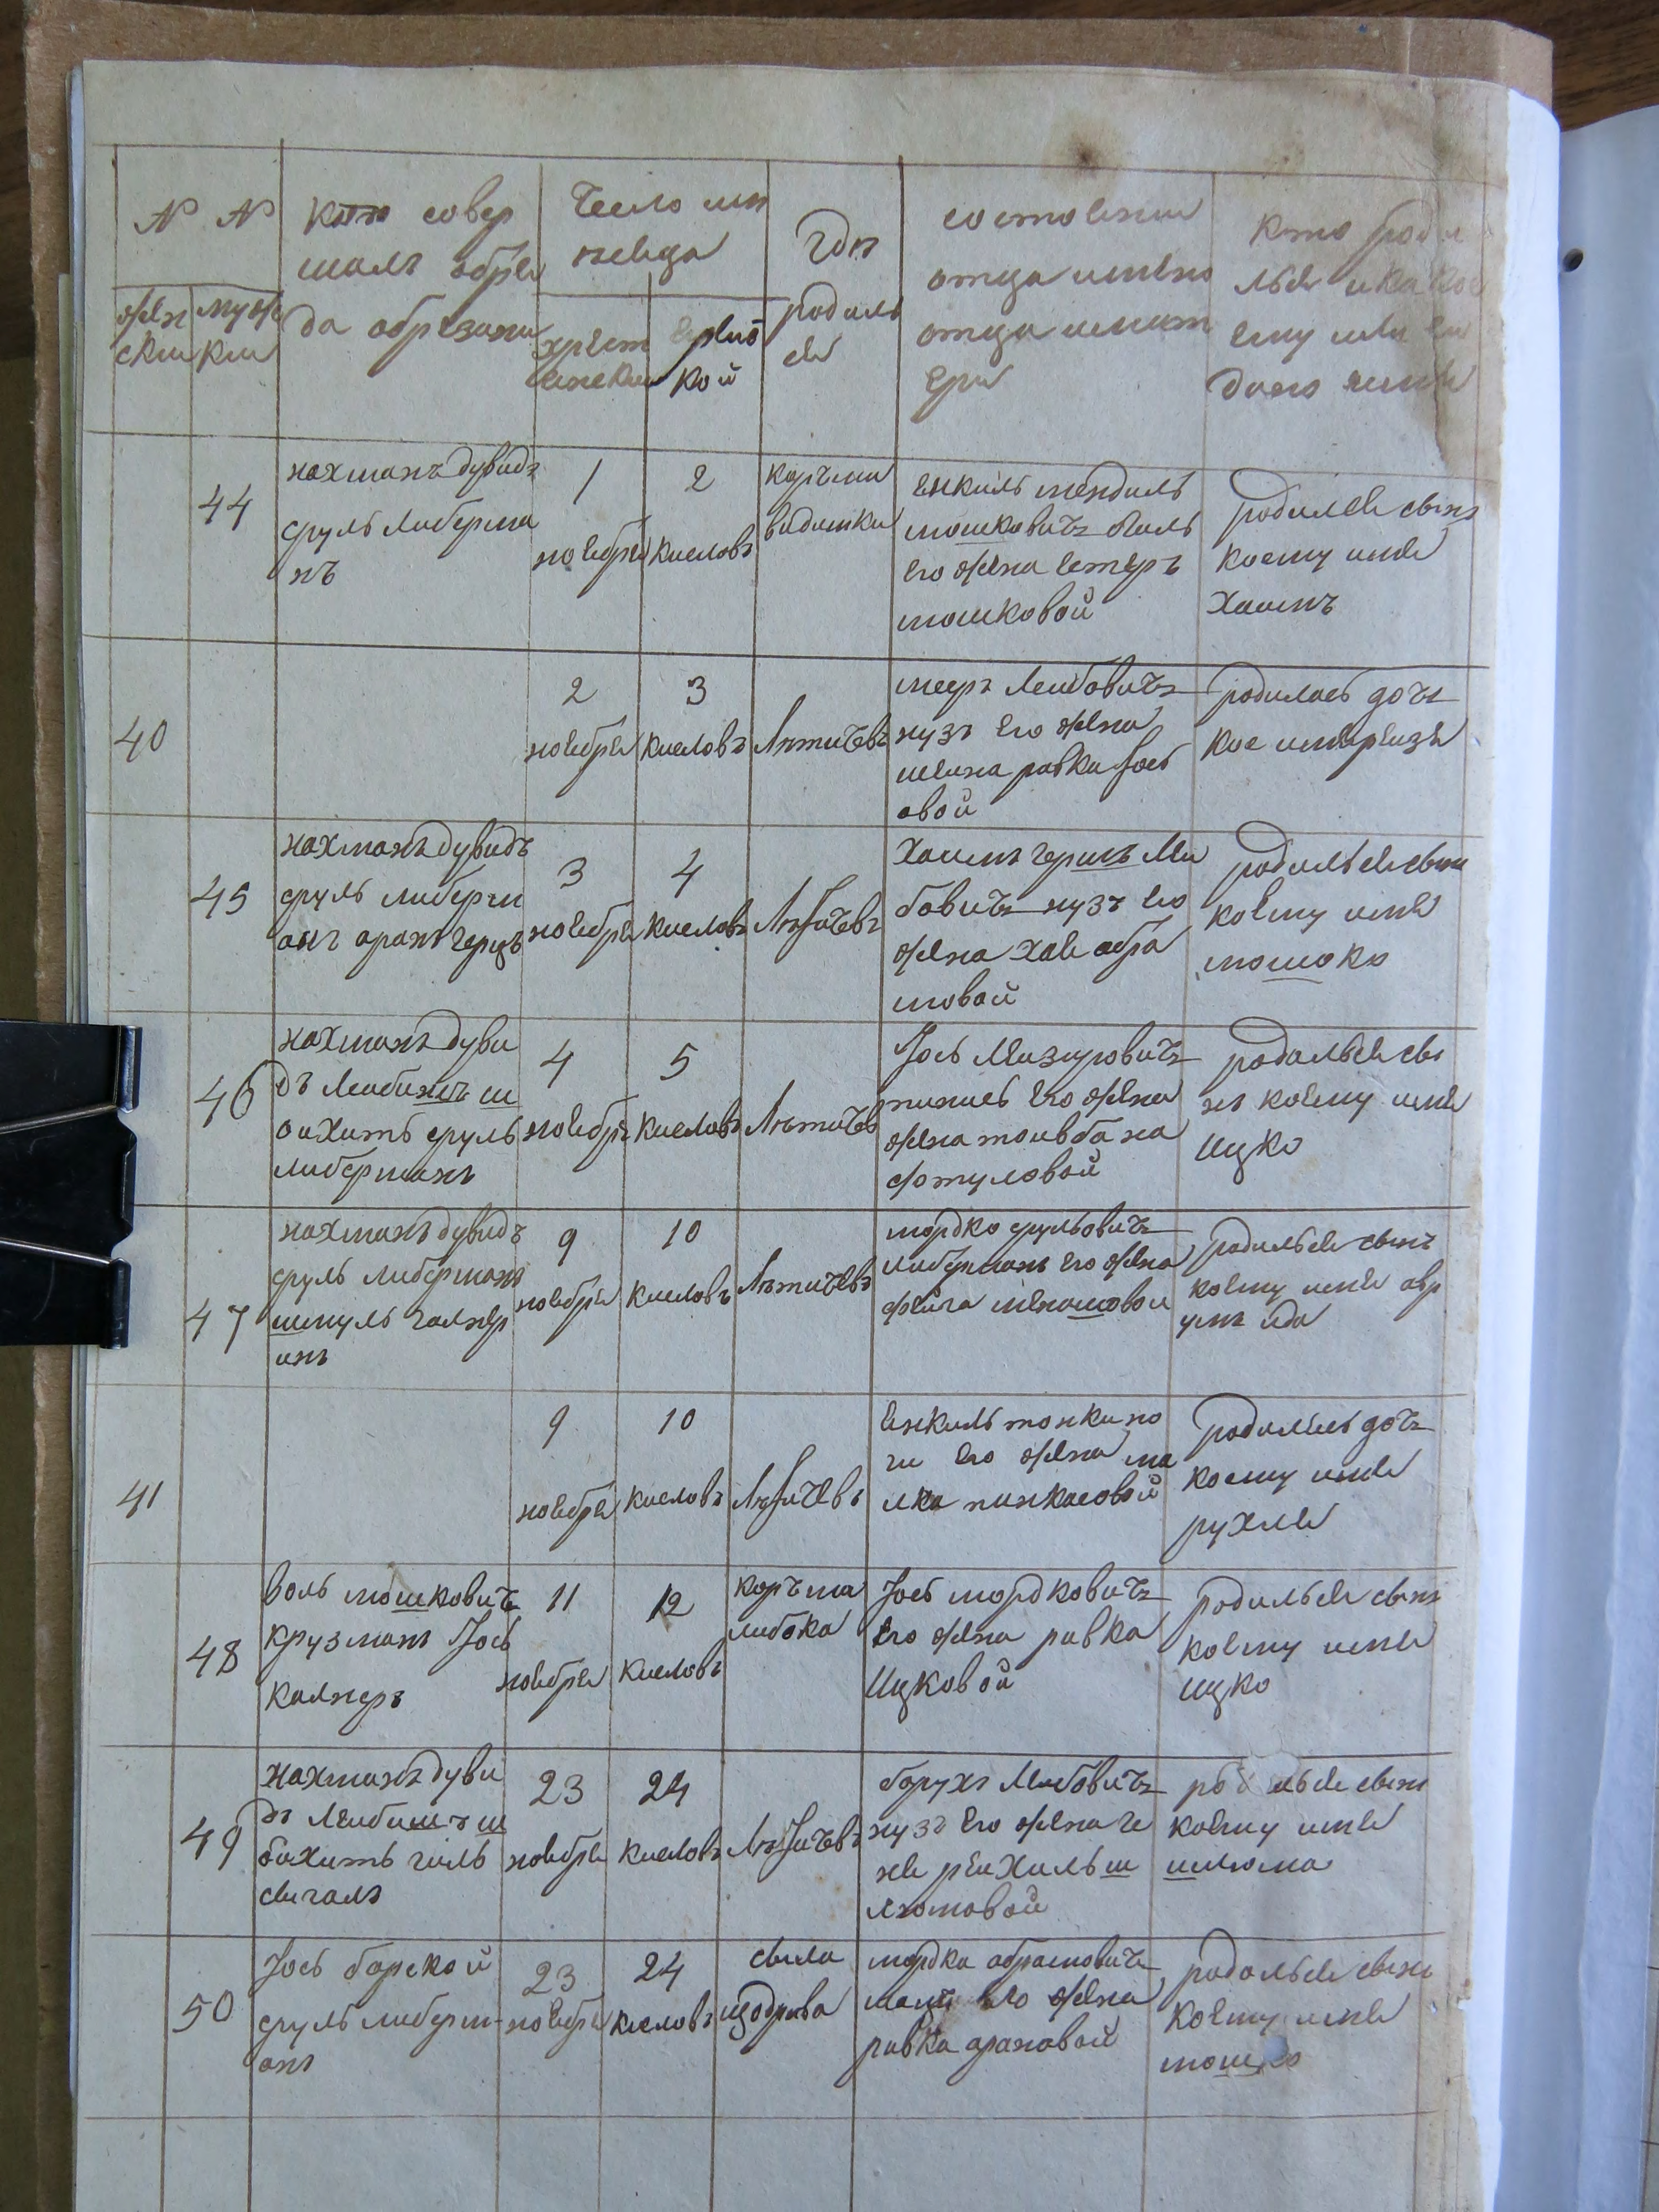 N N
женски
мужски
кто совер
шалъ обря
да обрезани
Число ме
хрест
еврейс
кой
гдъ
родилься
состоении
отца имено
отца имат
ери
кто роди
лься икакое
ему или ей
дано имя
44
нахманъ дувидъ
сруль либерма
нъ
1
ноебря
2
кисловъ
корчми
енкиль мендиль
мошковичъ
его жена естеръ
мошковой
родилься сынъ
коему имя
хаимъ
40
2
ноебря
3
кисловъ
Лътичевъ
меер лейбовичъ
нузъ его жена
ривка Јось
овой
родилась дочь
кое имя реизя
45
нахманъ дувидъ
сруль либерм
анъ аронъ герцъ
3
ноебря
4
кисловъ
Лътичевъ
хаимъ гершъ Леи
бовичъ нузъ его
жена хая абра
мовой
родилься сынъ
коему имя
мошко
46
нахманъ дуви
дъ Леибишъ ш
оихитъ сруль
либерманъ
4
ноебря
5
кисловъ
Лътичевъ
Јось Леизировичъ
его жена
жена тоивба на
фтуловой
родилься сы
нъ коему имя
ицко
47
нахманъ дувидъ
сруль либерманъ
шмуль галпер
инъ
9
ноебря
10
кисловъ
Лътичевъ
мордко срульовичъ
либерманъ его жена
фейга менашовои
родилься сынъ
коему имя авр
умъ ида
41
9
ноебря
10
кисловъ
Лътичевъ
енкиль
его жена ма
лка пинкасовой
родилась дочъ
коему имя
рухля
48
воль мошковичъ
крузманъ Јось
калнеръ
11
ноебря
12
кисловъ
корчма
Јось мордковичъ
его жена ривка
Ицковой
родилься сынъ
коему имя
ицко
49
нахманъ дуви
дъ Леибишъ ш
оихитъ гиль
сигалъ
23
ноебря
24
кисловъ
Лътичевъ
борухъ Леибовичъ
нузъ его жена ге
ня реихиль ш
ломовой
родилься сынъ
коему имя
шлюма
50
Јось борской
сруль либерм-
анъ
23
ноебря
24
кисловъ
мордка абрамовичъ
его жена
ривка ароновой
родилься сынъ
коему имя
мошко